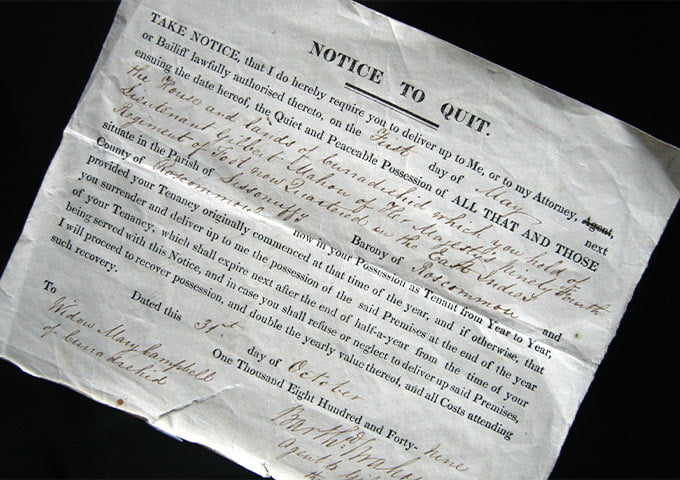 NOTICE TO QUIT.
TAKE NOTICE, that I do hereby require you to deliver up to Me, or to my Attorney, Agent,
or Bailiff lawfully authorised thereto, on the First day of May next
ensuing the date hereof, the Quiet and Peaceable Possession of ALL THAT AND THOSE
the House and Lands of Curraderhid which you hold of
Lieutenant Gilbert Mahon of Her Majesty's Ninety Fourth
Regiment of Foot now Quartered in the East Indies
situate in the Parish of Lissonuffy Barony of Roscommon and
County of Roscommon now in your Possession as Tenant from Year to Year,
provided your Tenancy originally commenced at that time of the year, and if otherwise, that
you surrender and deliver up to me the possession of the said Premises at the end of the year
of your Tenancy, which shall expire next after the end of half-a-year from the time of your
being served with this Notice, and in case you shall refuse or neglect to deliver up said Premises,
I will proceed to recover possession, and double the yearly value thereof, and all Costs attending
such recovery.
Dated this 31st day of October
One Thousand Eight Hundred and Forty-Nine
To
Widow Mary Campbell
of
Agent to